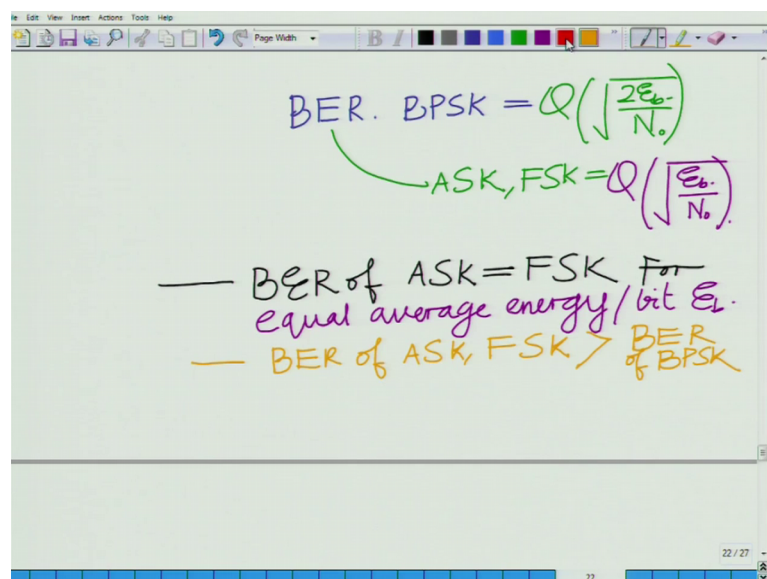 Edit View Insert Actions Tools Help
Page Width B I
BER. BPSK = Q(√(2Ɛb/N₀))
ASK, FSK = Q(√(Ɛb/N₀)).
— BER of ASK = FSK For
equal average energy/bit Ɛb.
— BER of ASK, FSK > BER of BPSK
22 / 27
22